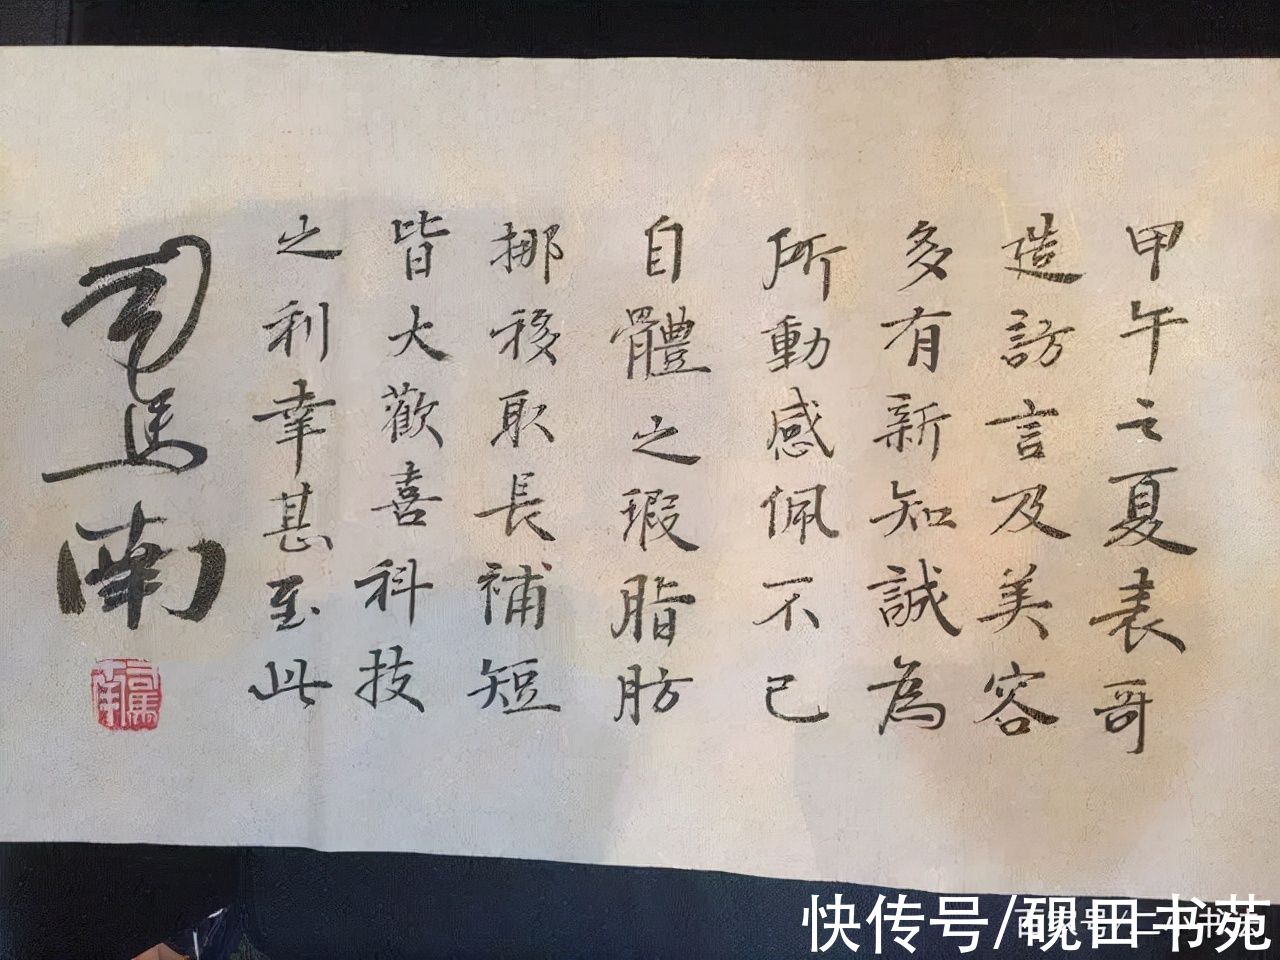 甲午之夏表哥
造訪言及美容
多有新知誠為
所動感佩不已
自體之瑕脂肪
挪移取長補短
皆大歡喜科技
之利幸甚至此
司馬南
快传号/砚田书苑